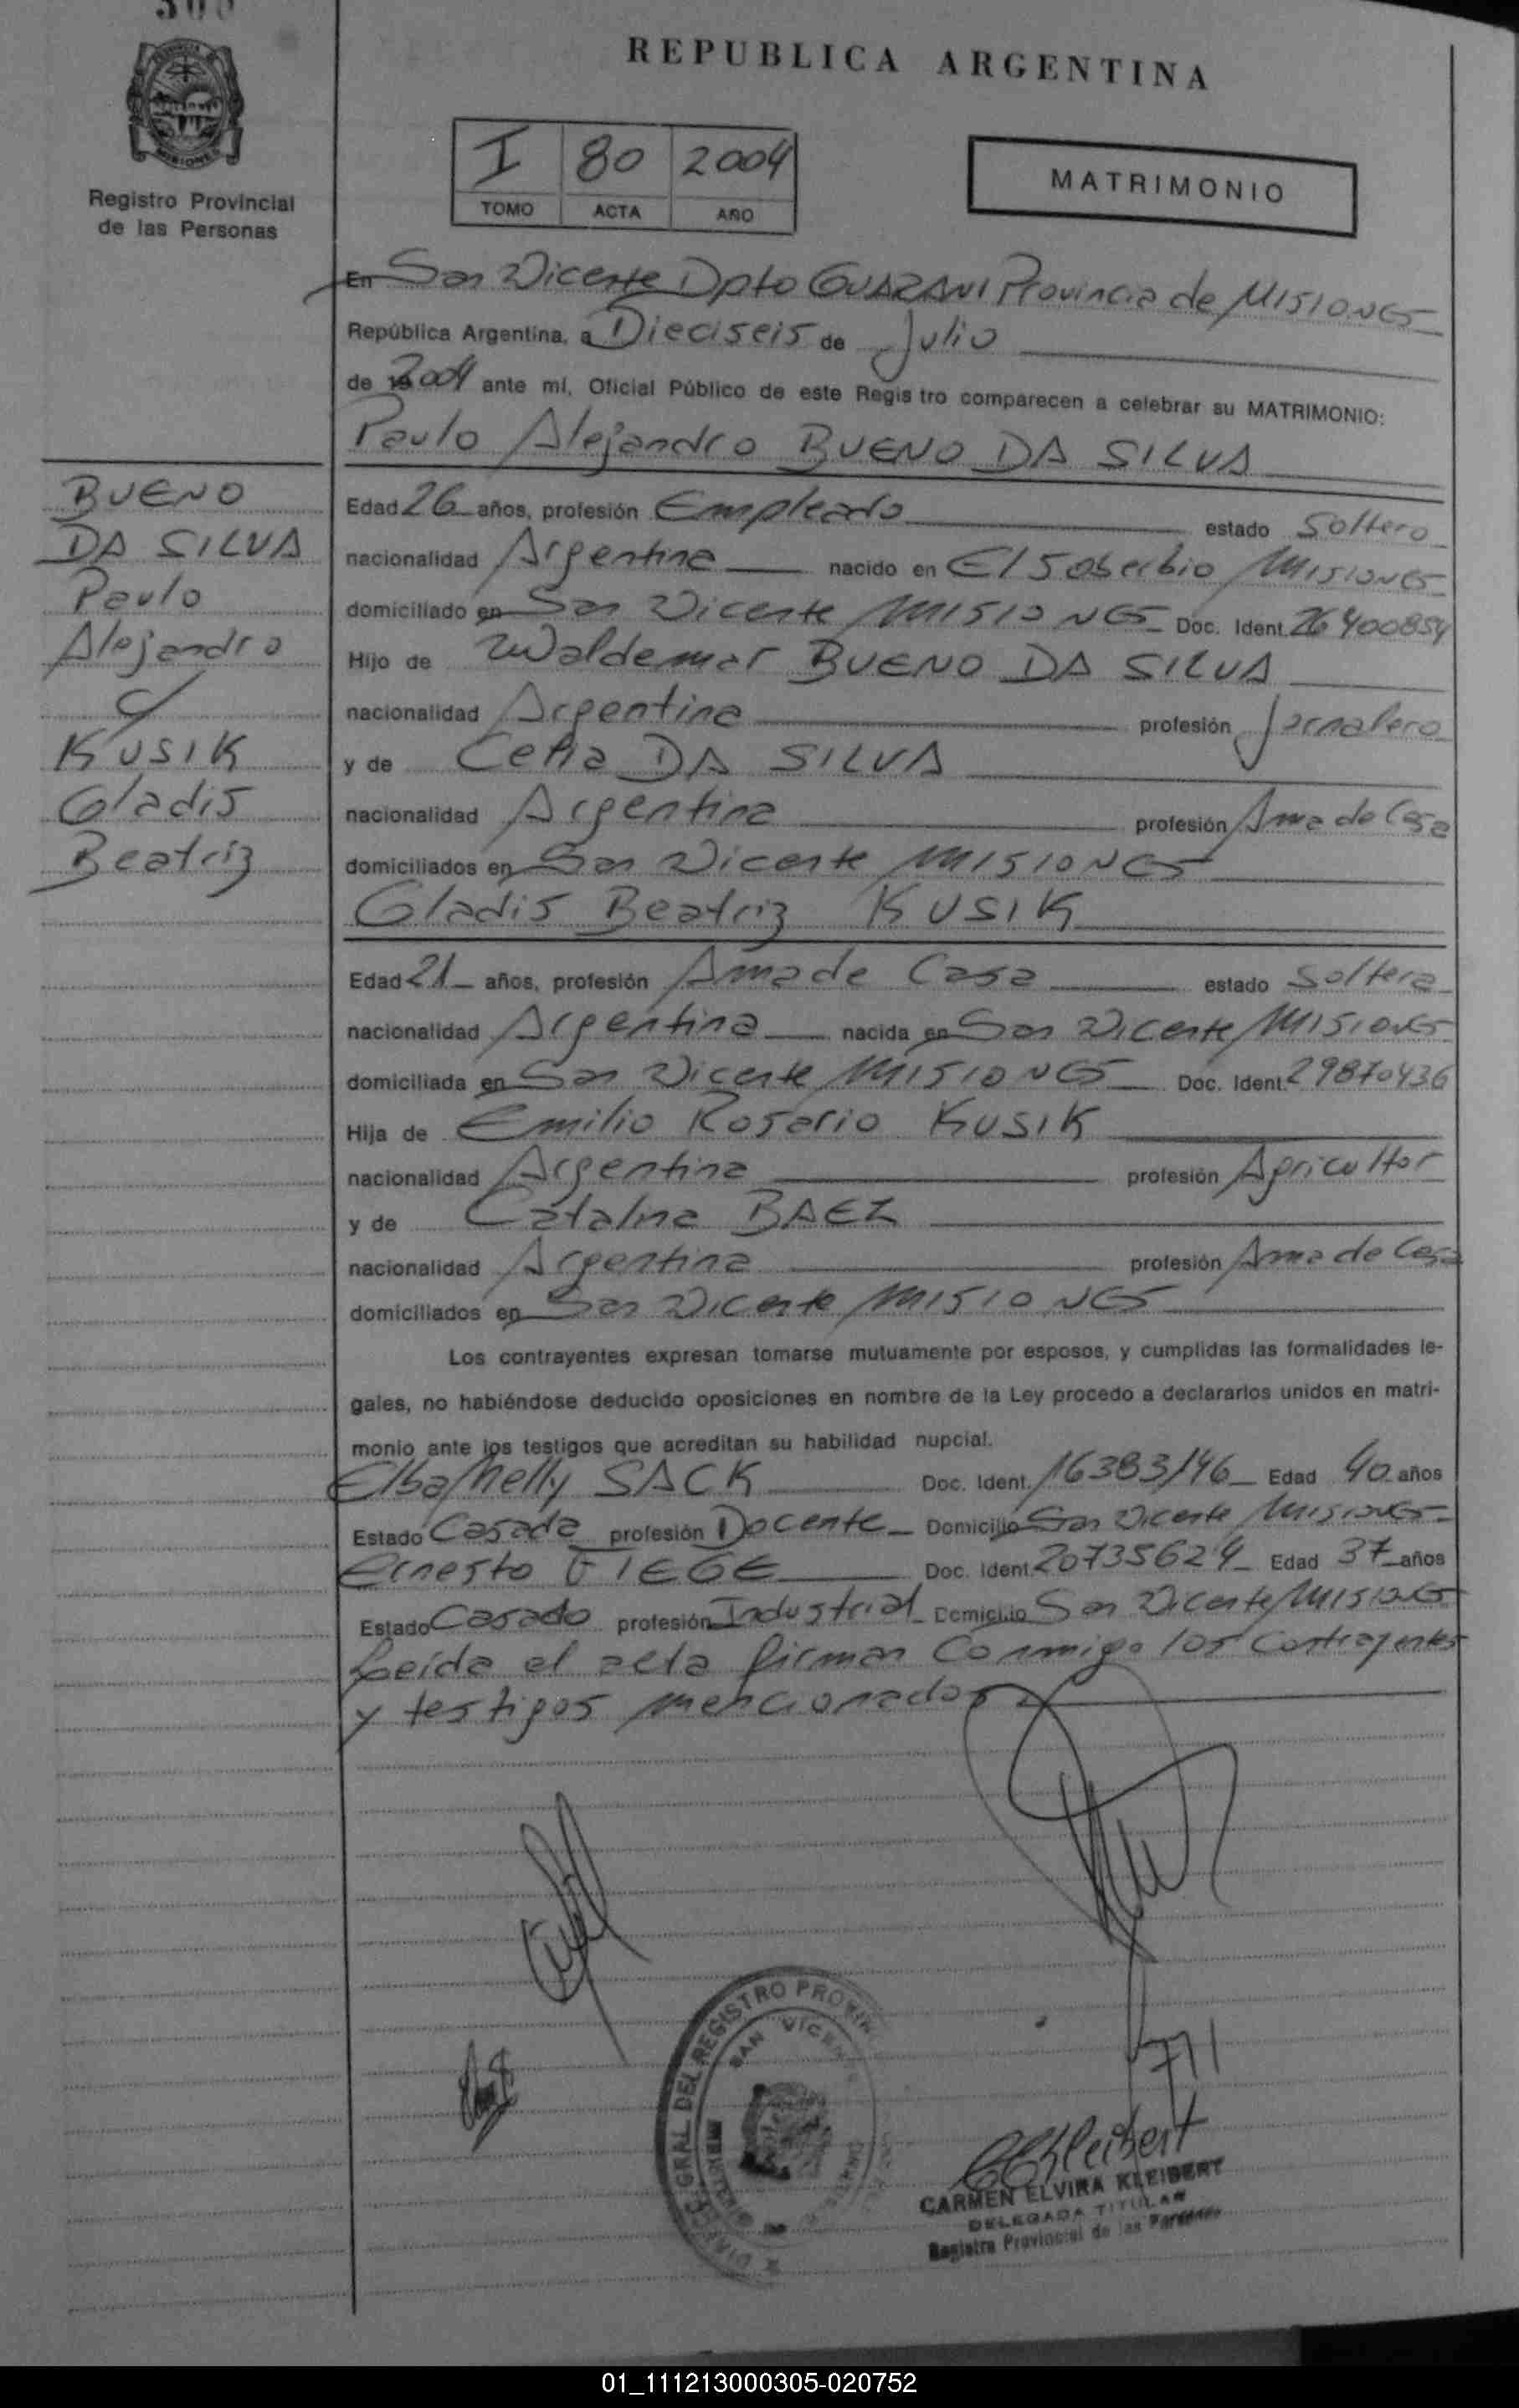 REPUBLICA ARGENTINA
MISIONES
Registro Provincial
de las Personas
I 80 2004
TOMO ACTA AÑO
MATRIMONIO
En San Vicente Dpto GUARANI Provincia de MISIONES
República Argentina, a Dieciseis de Julio
de 2004 ante mí, Oficial Público de este Regis tro comparecen a celebrar su MATRIMONIO:
Paulo Alejandro BUENO DA SILVA
BUENO
DA SILVA
Paulo
Alejandro
c/
KUSIK
Gladis
Beatriz
Edad 26 años, profesión Empleado estado Soltero
nacionalidad Argentina nacido en El Soberbio MISIONES
domiciliado en San Vicente MISIONES Doc. Ident. 26400854
Hijo de Waldemar BUENO DA SILVA
nacionalidad Argentina profesión Jornalero
y de Celia DA SILVA
nacionalidad Argentina profesión Ama de Casa
domiciliados en San Vicente MISIONES
Gladis Beatriz KUSIK
Edad 21 años, profesión Ama de Casa estado Soltera
nacionalidad Argentina nacida en San Vicente MISIONES
domiciliada en San Vicente MISIONES Doc. Ident. 29870436
Hija de Emilio Rosario KUSIK
nacionalidad Argentina profesión Agricultor
y de Catalina BAEZ
nacionalidad Argentina profesión Ama de Casa
domiciliados en San Vicente MISIONES
Los contrayentes expresan tomarse mutuamente por esposos, y cumplidas las formalidades le-
gales, no habiéndose deducido oposiciones en nombre de la Ley procedo a declararlos unidos en matri-
monio ante los testigos que acreditan su habilidad nupcial.
Elba Nelly SACK Doc. Ident. 16383146 Edad 40 años
Estado Casada profesión Docente Domicilio San Vicente MISIONES
Ernesto FIEGE Doc. Ident. 20735624 Edad 37 años
Estado Casado profesión Industrial Domicilio San Vicente MISIONES
Leida el acta firman Conmigo los Contrayentes
y testigos mencionados
CARMEN ELVIRA KLEIBERT
DELEGADA TITULAR
Registro Provincial de las Personas
01_111213000305-020752